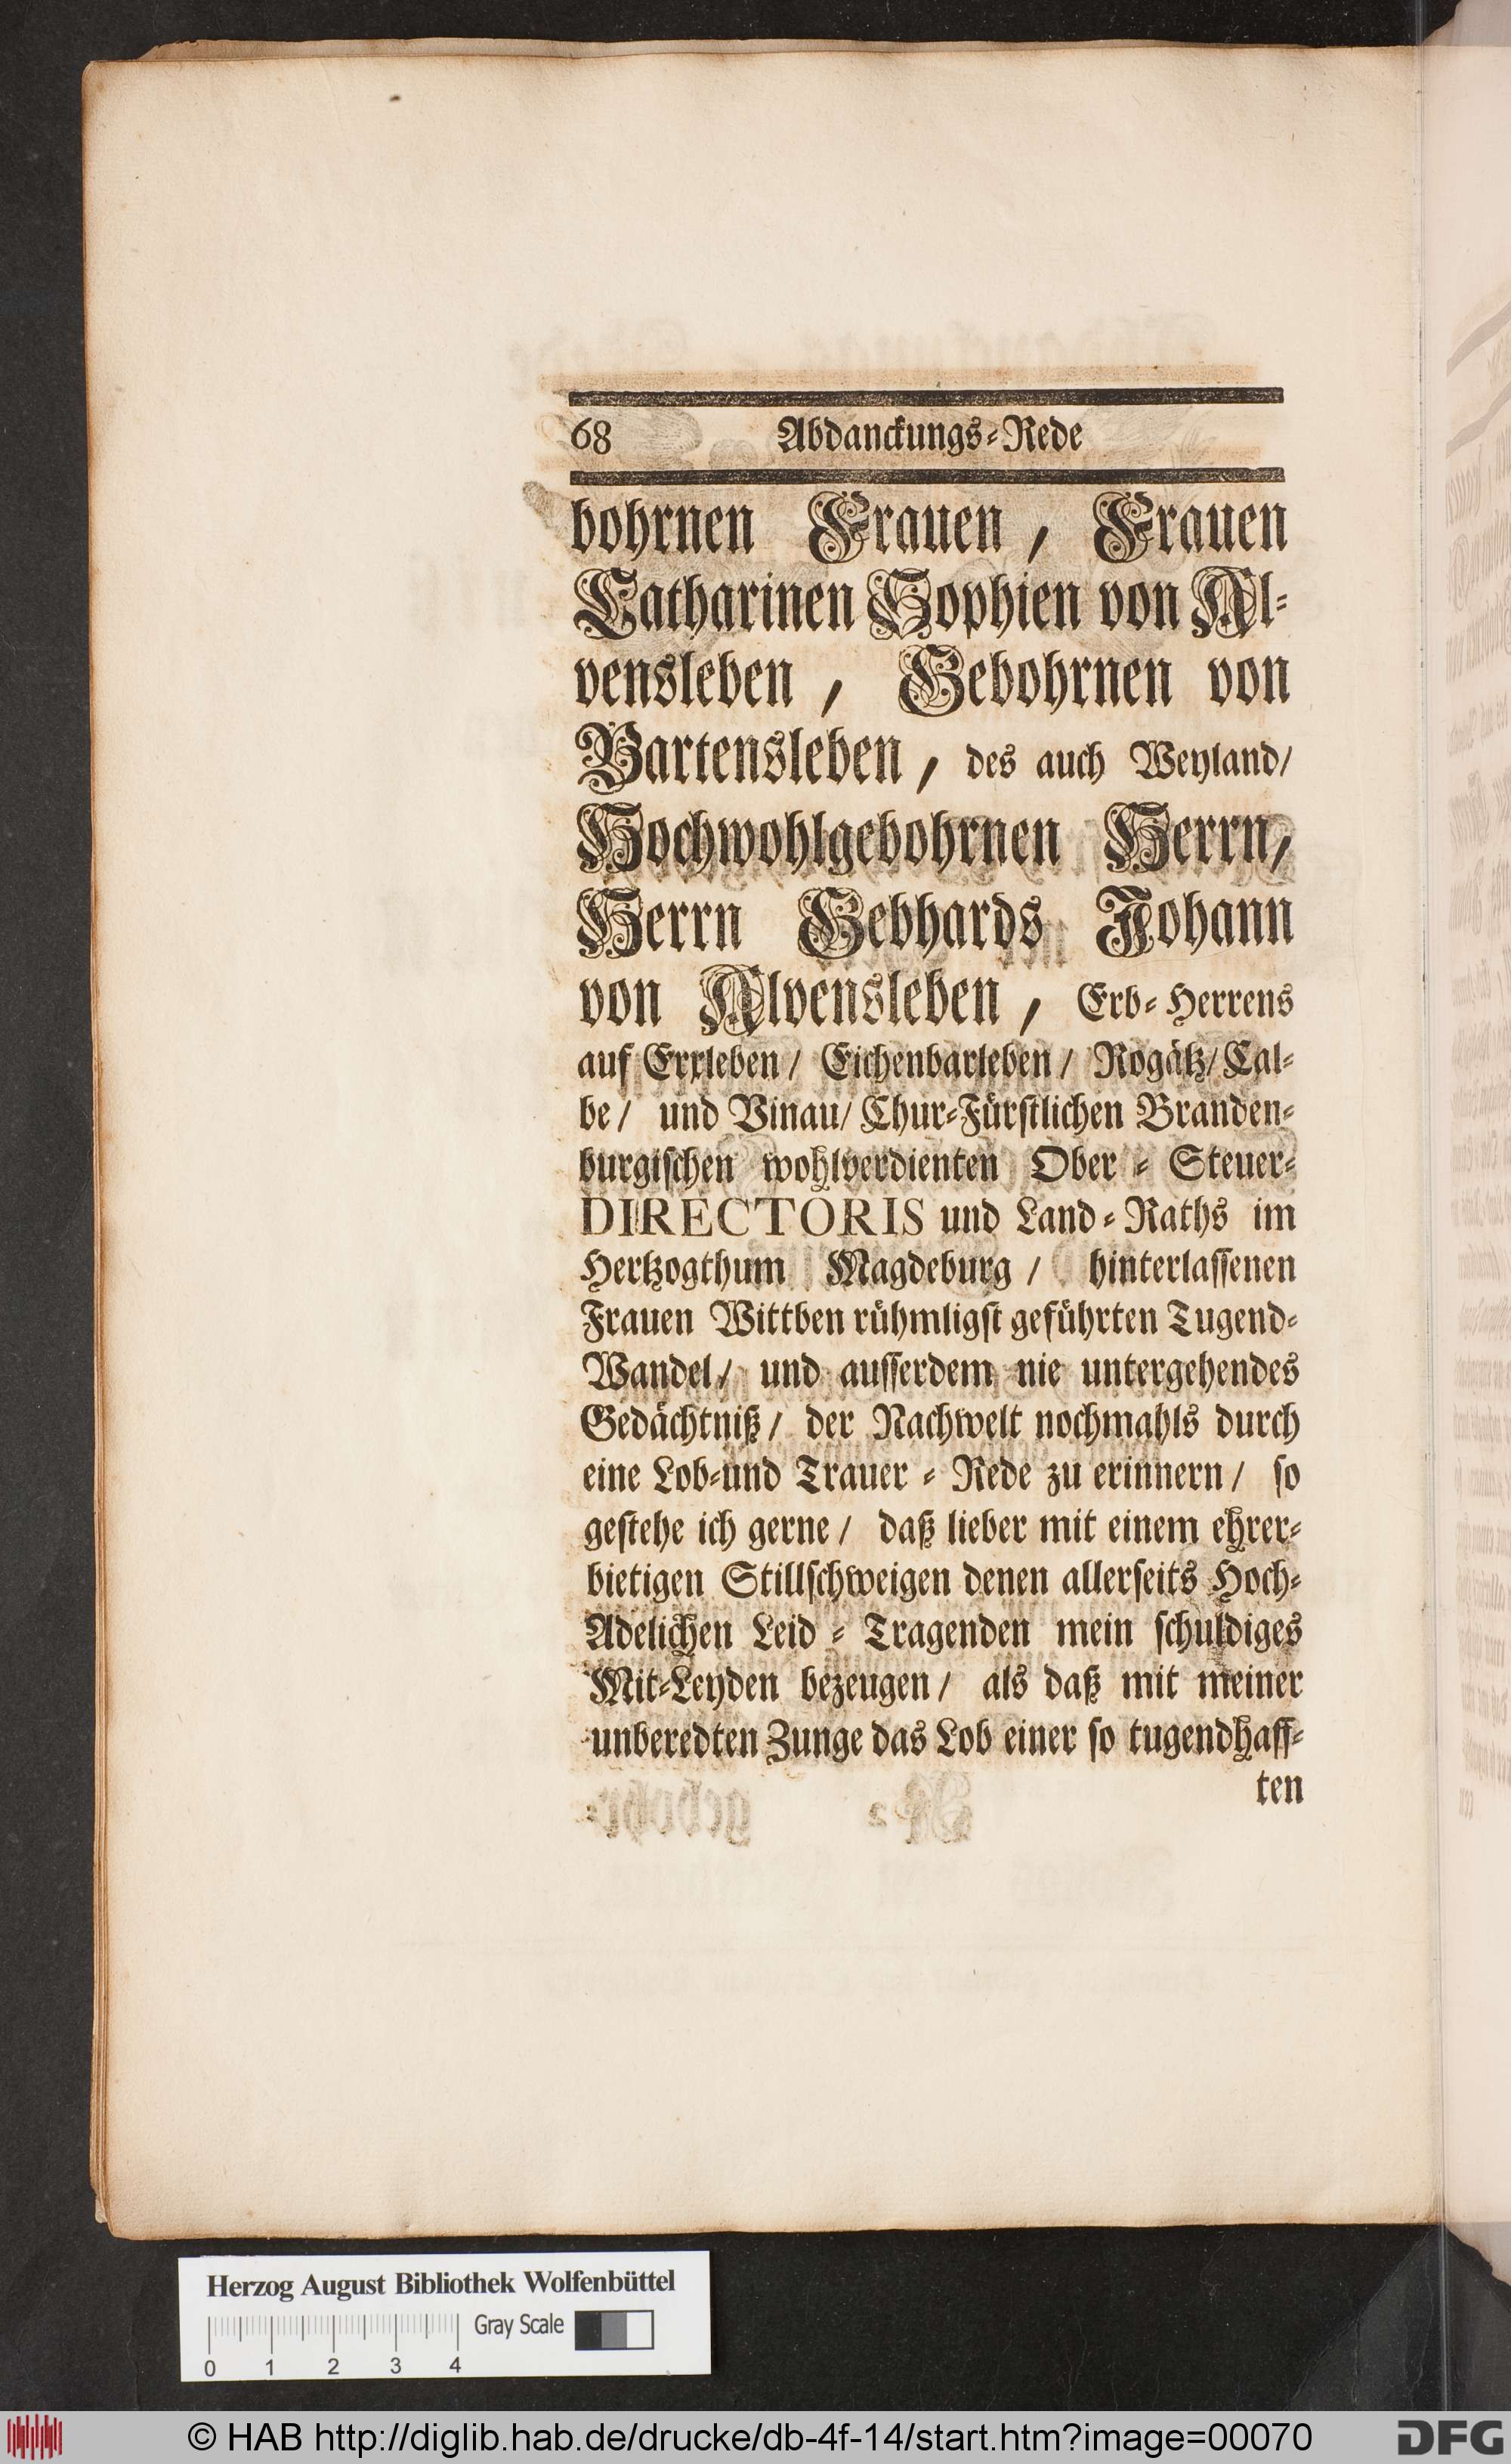 68 Abdanckungs-Rede
bohrnen Frauen, Frauen
Catharinen Sophien von Al-
vensleben, Gebohrnen von
Bartensleben, des auch Weyland/
Hochwohlgebohrnen Herrn,
Herrn Gebhards Johann
von Alvensleben, Erb-Herrens
auf Erxleben/ Eichenbarleben/ Rogätz/ Cal-
be/ und Vinau/ Chur-Fürstlichen Branden-
burgischen wohlverdienten Ober-Steuer-
DIRECTORIS und Land-Raths im
Hertzogthum Magdeburg/ hinterlassenen
Frauen Wittben rühmligst geführten Tugend-
Wandel/ und ausserdem nie untergehendes
Gedächtniß/ der Nachwelt nochmahls durch
eine Lob-und Trauer-Rede zu erinnern/ so
gestehe ich gerne/ daß lieber mit einem ehrer-
bietigen Stillschweigen denen allerseits Hoch-
Adelichen Leid-Tragenden mein schuldiges
Mit-Leyden bezeugen/ als daß mit meiner
unberedten Zunge das Lob einer so tugendhaff-
ten
Herzog August Bibliothek Wolfenbüttel
Gray Scale
0 1 2 3 4
© HAB http://diglib.hab.de/drucke/db-4f-14/start.htm?image=00070
DFG